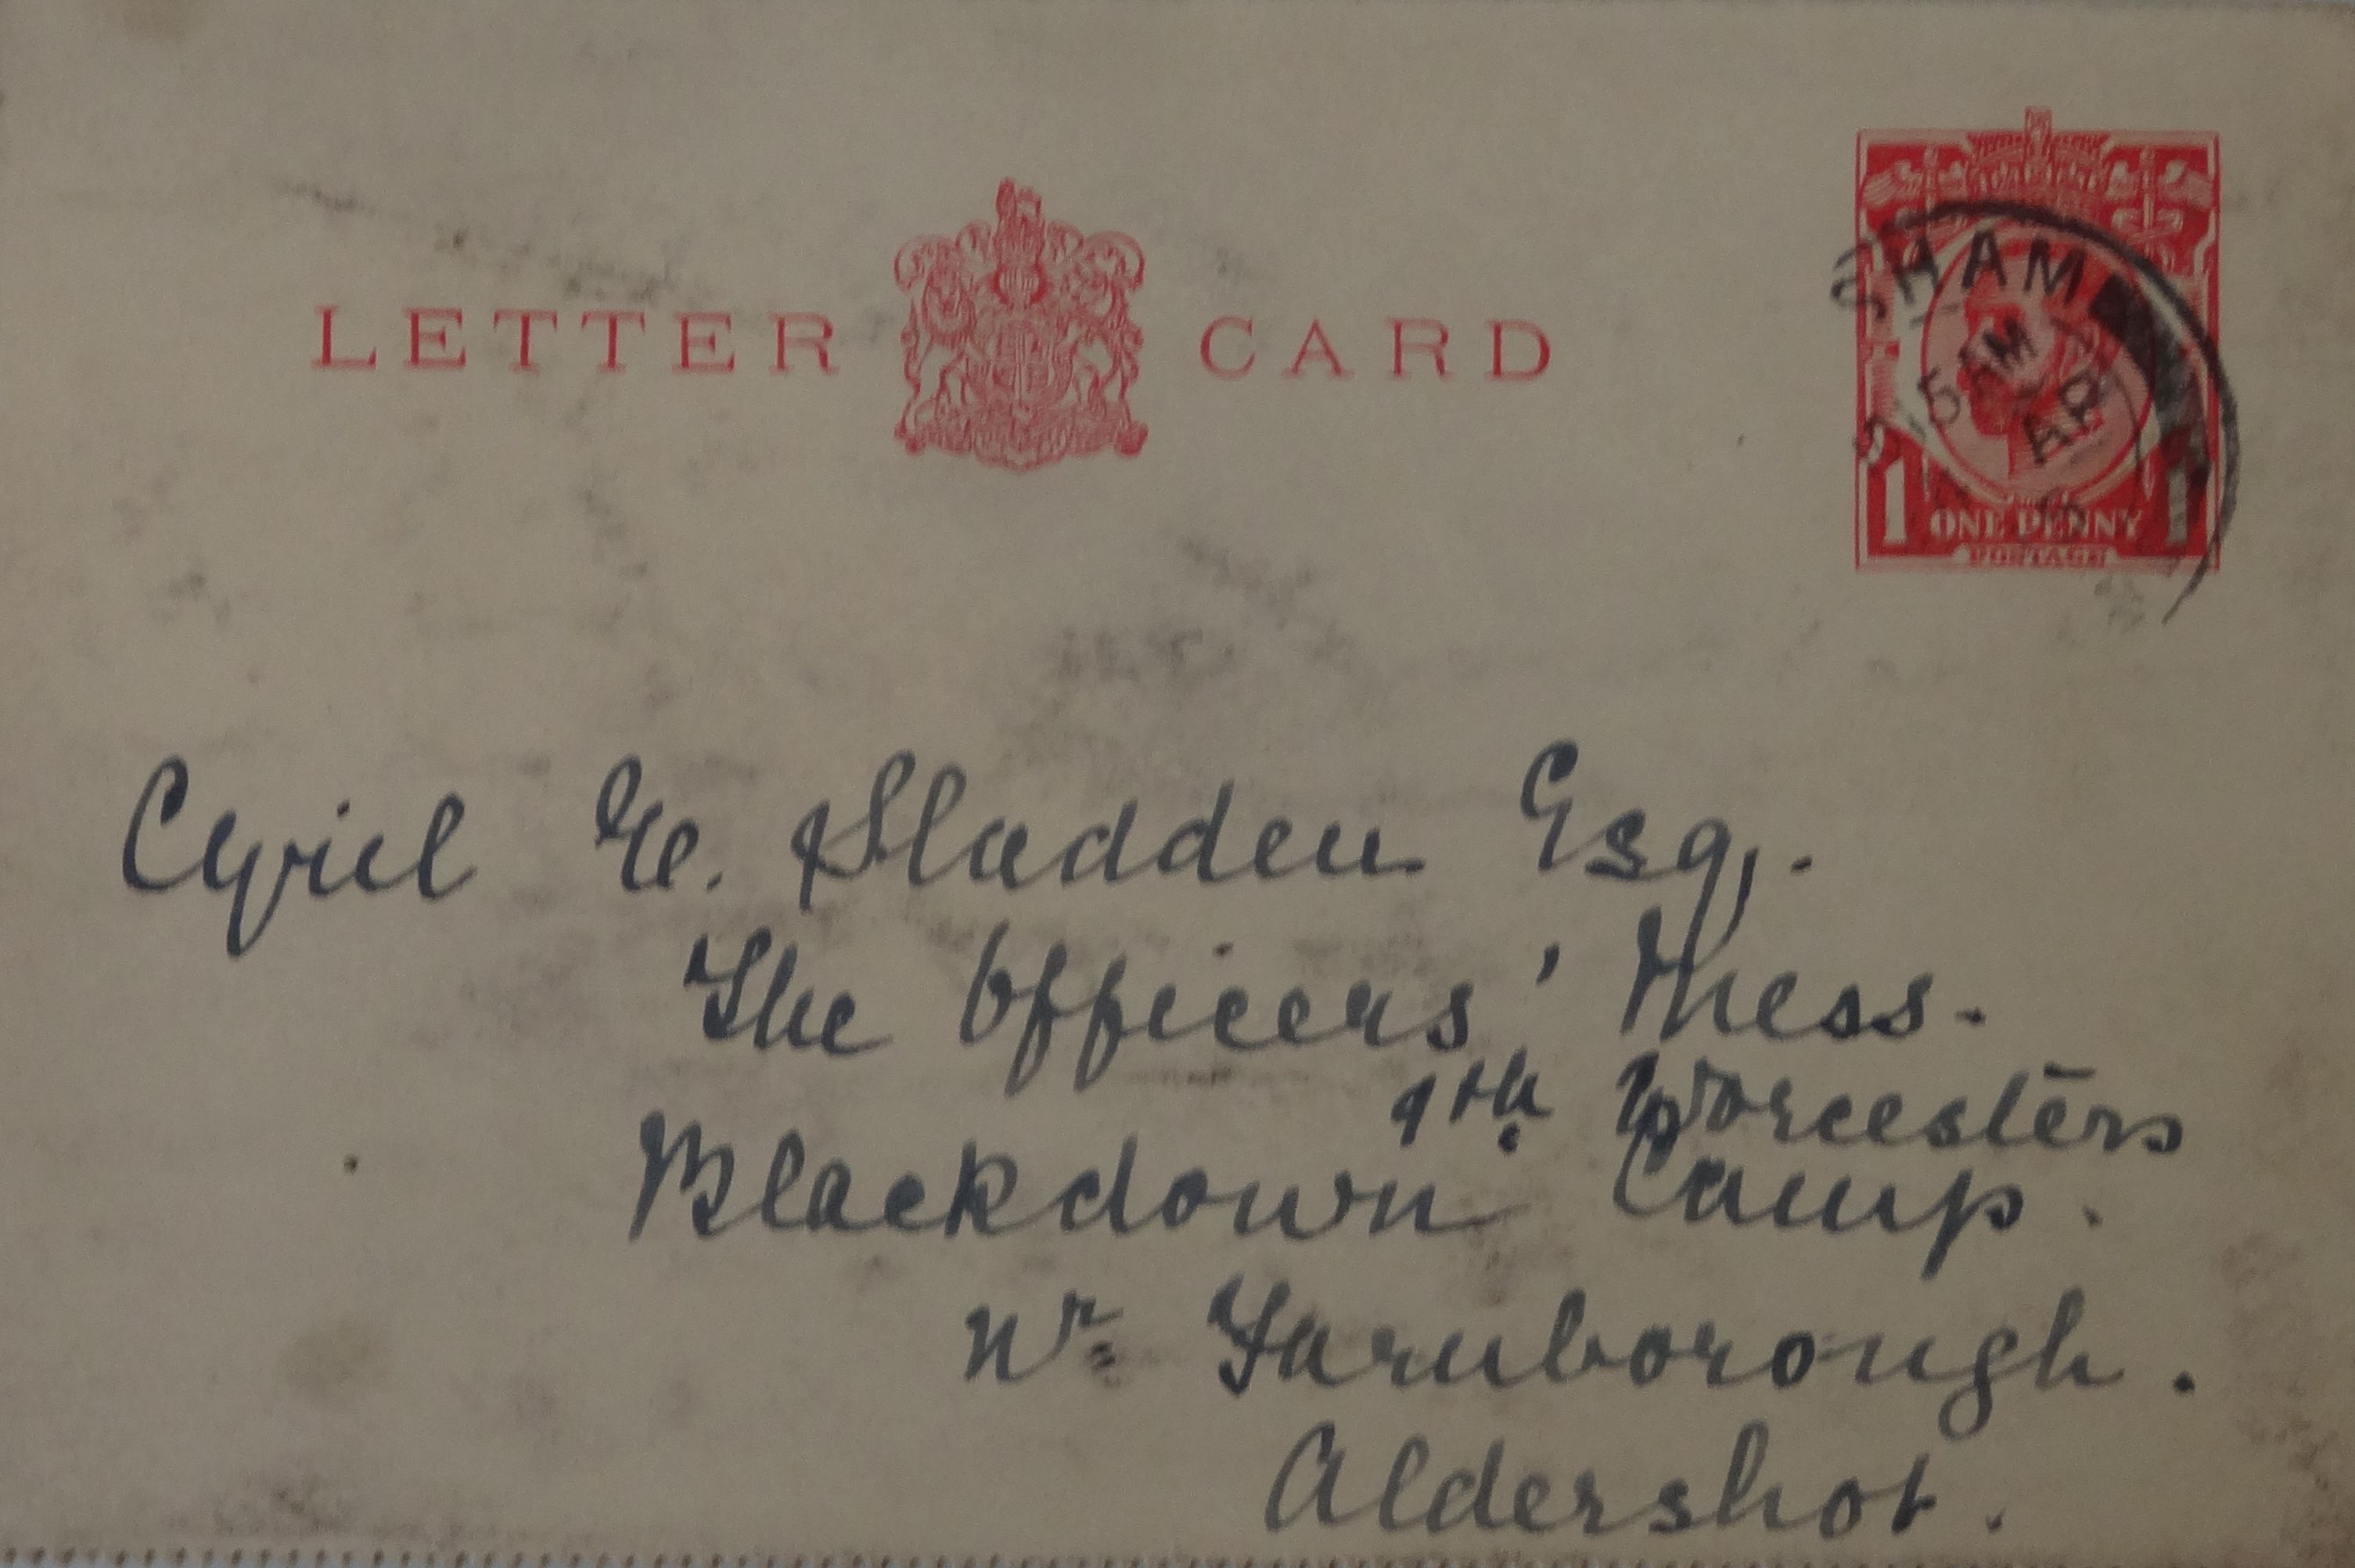 LETTER CARD
SHAM
5 AM
AP
1 ONE PENNY 1
POSTAGE
Cyril E. Sladden Esq.
The Officers' Mess.
9th Worcesters
Blackdown Camp.
Nr Farnborough.
Aldershot.